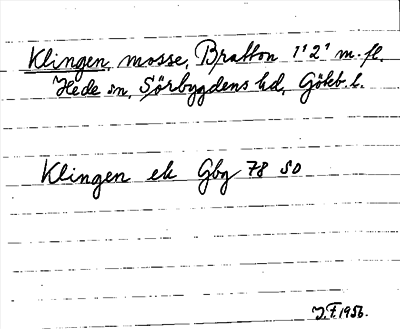 Klingen, mosse, Bratton 1¹ 2¹ m. fl.
Hede sn, Sörbygdens hd, Götb. l.
Klingen ek Gbg 78 SO
J.F. 1956.